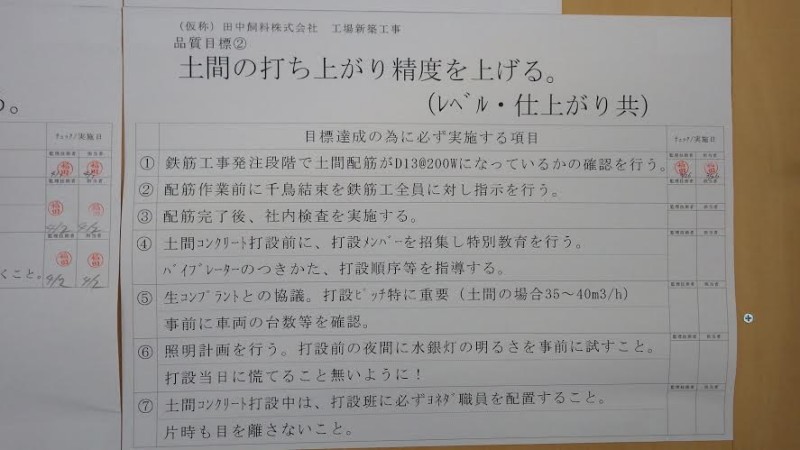 (仮称) 田中飼料株式会社 工場新築工事
品質目標②
土間の打ち上がり精度を上げる。
(ﾚﾍﾞﾙ・仕上がり共)
目標達成の為に必ず実施する項目
チェック/実施日
監理技術者 担当者
① 鉄筋工事発注段階で土間配筋がD13@200Wになっているかの確認を行う。
② 配筋作業前に千鳥結束を鉄筋工全員に対し指示を行う。
③ 配筋完了後、社内検査を実施する。
④ 土間ｺﾝｸﾘｰﾄ打設前に、打設ﾒﾝﾊﾞｰを招集し特別教育を行う。
ﾊﾞｲﾌﾞﾚｰﾀｰのつきかた、打設順序等を指導する。
⑤ 生ｺﾝﾌﾟﾗﾝﾄとの協議。打設ﾋﾟｯﾁ特に重要（土間の場合35～40m3/h)
事前に車両の台数等を確認。
⑥ 照明計画を行う。打設前の夜間に水銀灯の明るさを事前に試すこと。
打設当日に慌てること無いように！
⑦ 土間ｺﾝｸﾘｰﾄ打設中は、打設班に必ずﾖﾈﾀﾞ職員を配置すること。
片時も目を離さないこと。
る。
チェック/実施日
監理技術者 担当者
9/2 9/2
くこと。
9/2 9/2